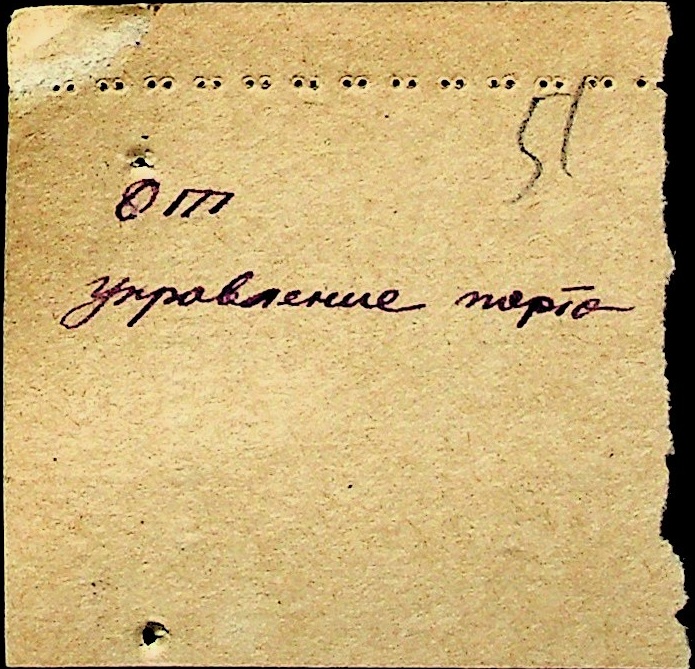 51
От
управление порта